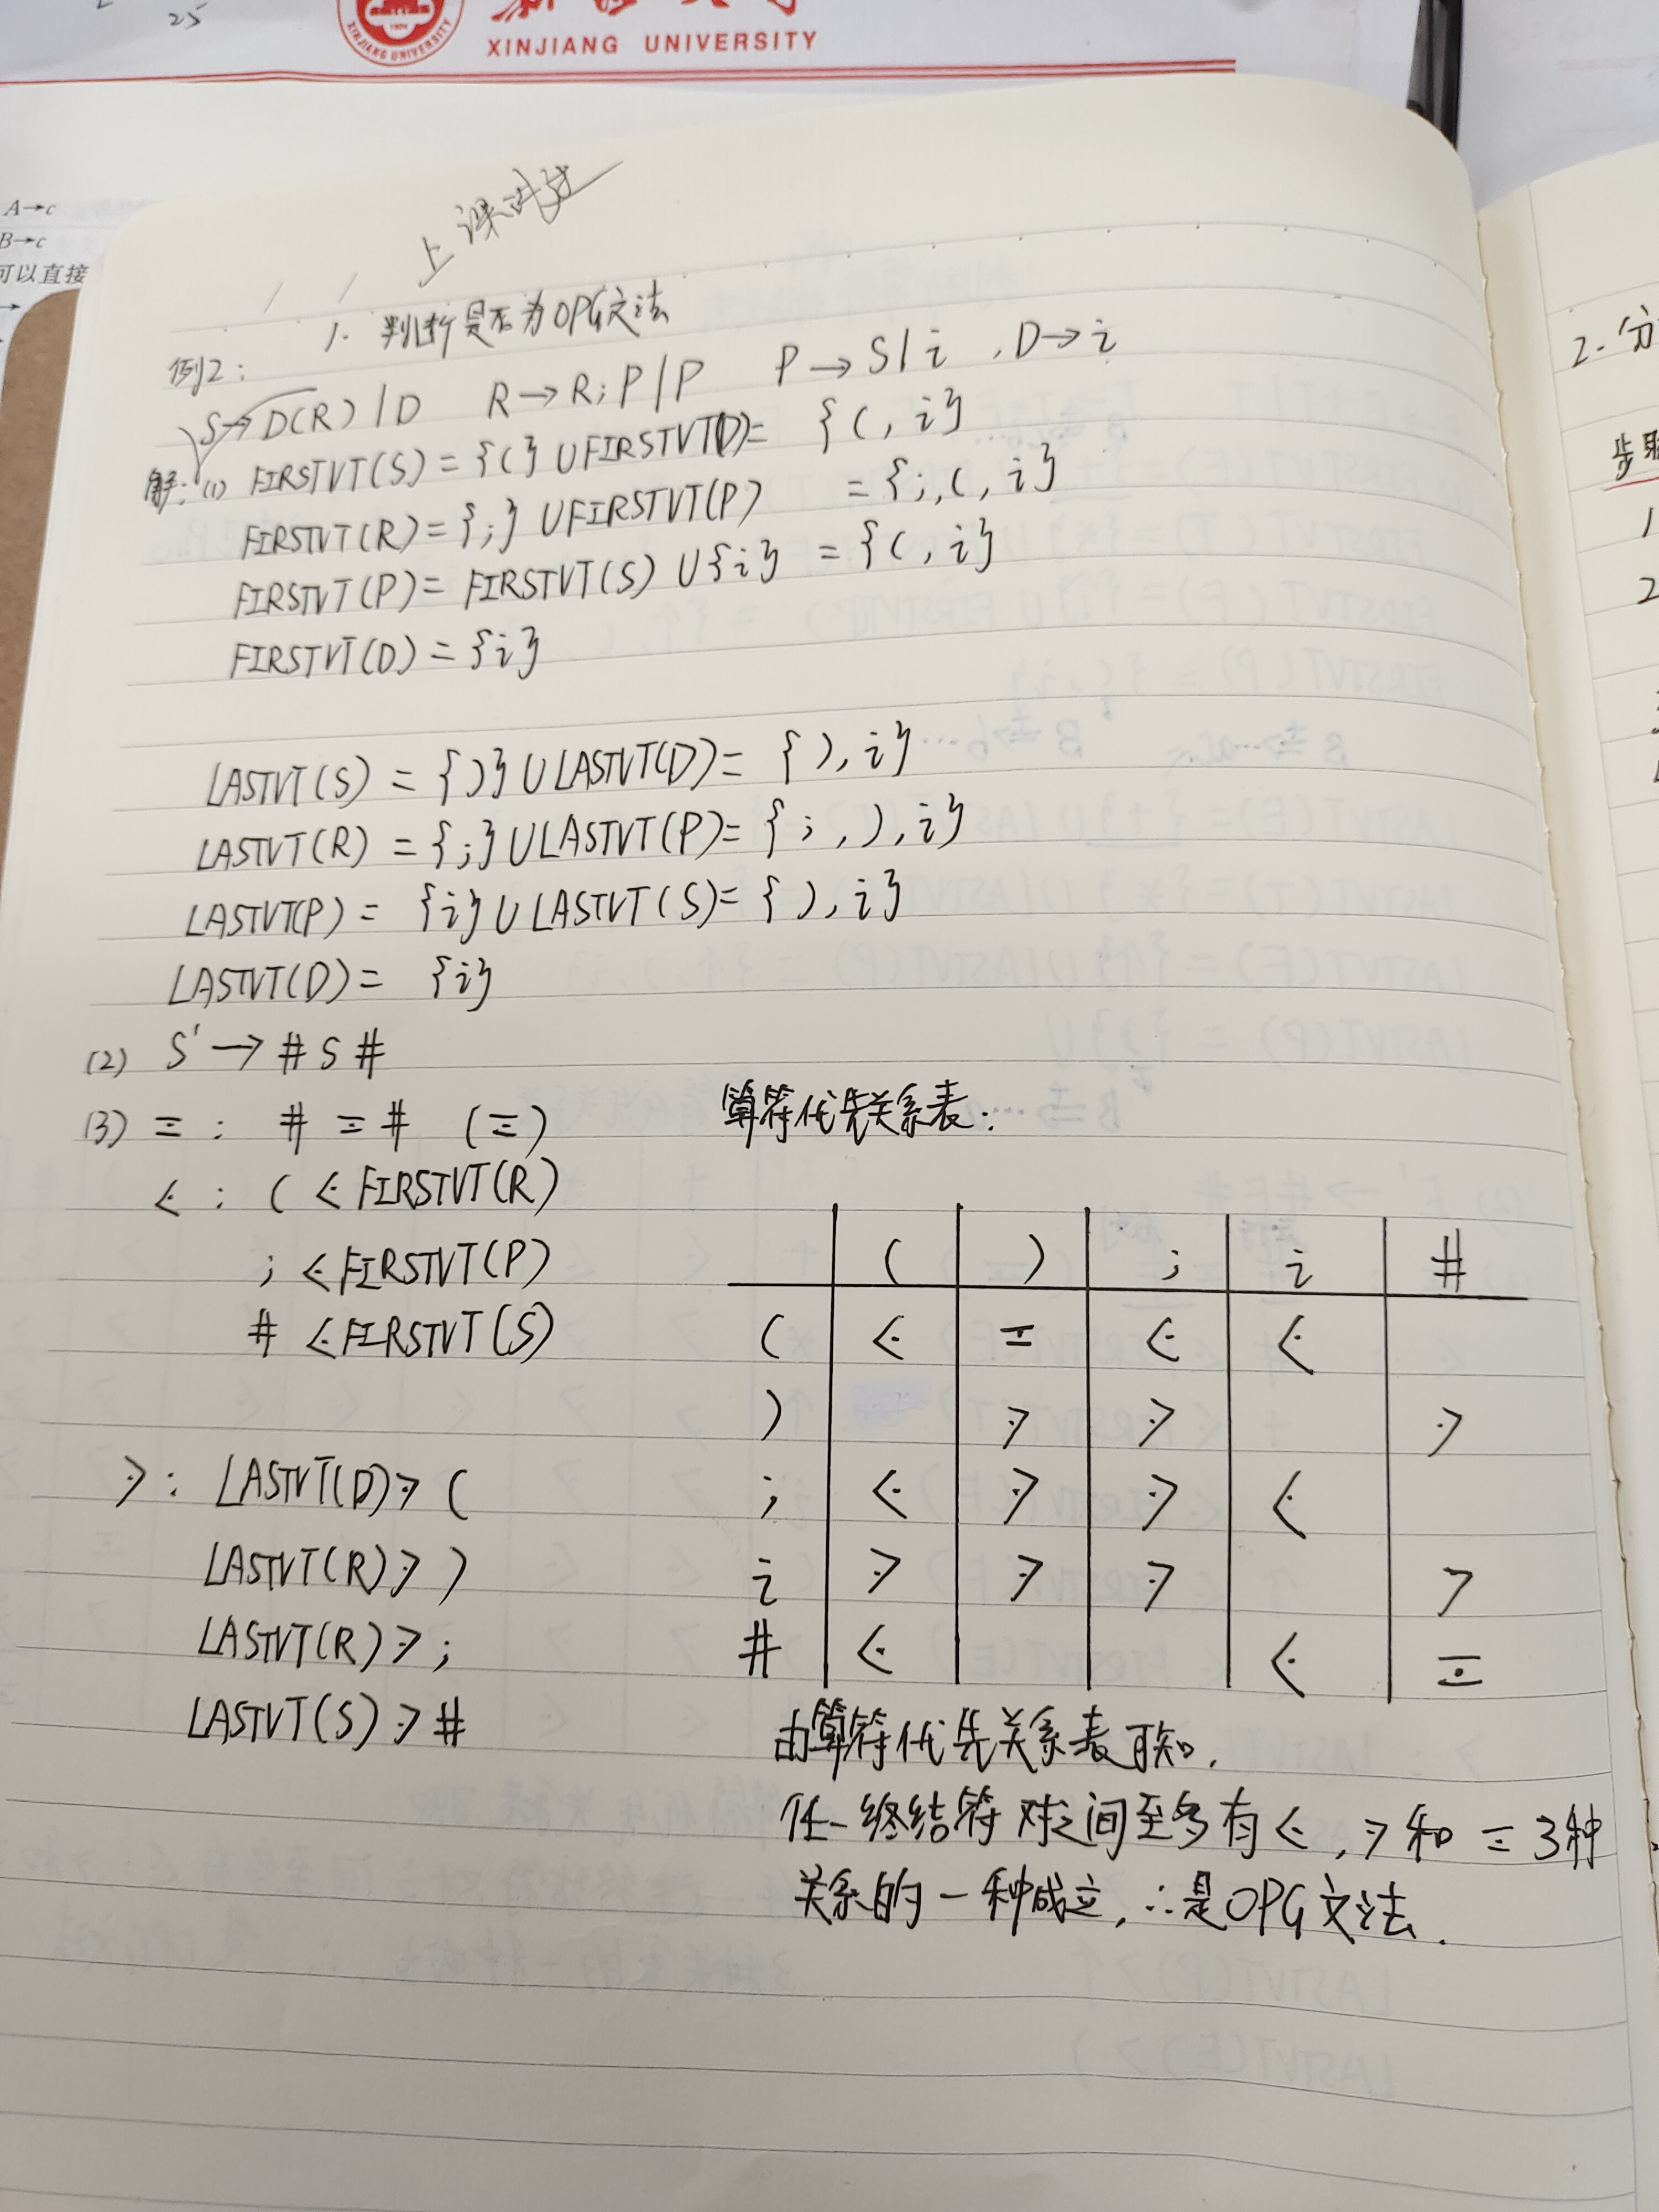 25
XINJIANG UNIVERSITY
XINJIANG UNIVERSITY
A→c
B→c
可以直接
上课讲过
1. 判断是否为OPG文法
例2:
S→D(R)|D R→R;P|P P→S|i ,D→i
解: (1) FIRSTVT(S)={(}∪FIRSTVT(D)= {(,i}
FIRSTVT(R)={;}∪FIRSTVT(P) ={;,(,i}
FIRSTVT(P)=FIRSTVT(S)∪{i} ={(,i}
FIRSTVT(D)={i}
LASTVT(S)={)}∪LASTVT(D)={),i}
LASTVT(R)={;}∪LASTVT(P)={;,),i}
LASTVT(P)={i}∪LASTVT(S)={),i}
LASTVT(D)={i}
(2) S'→#S#
(3) ≐: #≐# (≐)
⋖: (⋖FIRSTVT(R)
;⋖FIRSTVT(P)
#⋖FIRSTVT(S)
⋗: LASTVT(D)⋗(
LASTVT(R)⋗)
LASTVT(R)⋗;
LASTVT(S)⋗#
算符优先关系表:
( ) ; i #
( ⋖ ≐ ⋖ ⋖
) ⋗ ⋗ ⋗
; ⋖ ⋗ ⋗ ⋖
i ⋗ ⋗ ⋗ ⋗
# ⋖ ⋖ ≐
由算符优先关系表可知,
任一终结符对之间至多有⋖,⋗和≐3种
关系的一种成立,∴是OPG文法.
2.分
步
1
2